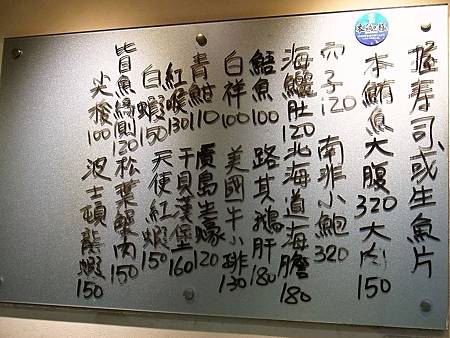 握寿司或生魚片
本鮪魚大腹320大肉150
穴子120 南非小鮑320
海鱺肚120北海道海膽180
鰭魚100 路其鵝肝180
白祥100 美國牛小排130
青魽110 廣島生蠔120
紅喉130干貝漢堡160
白蝦150天使紅蝦150
皆魚緣側120松葉蟹肉150
尖梭100 波士頓龍蝦150